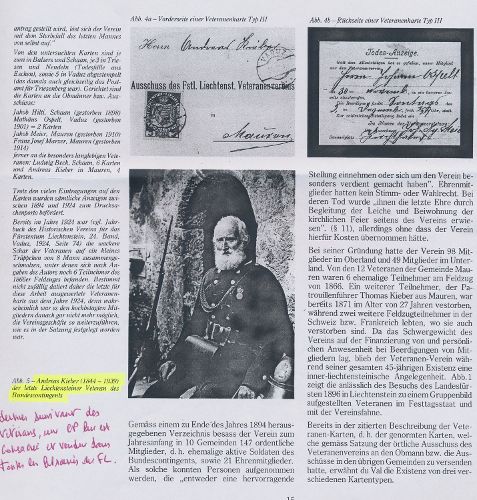 antrag gestellt wird, löst sich der Verein
mit dem Sterbefall des letzten Mannes
von selbst auf."
Von den untersuchten Karten sind je
zwei in Balzers und Schaan, je 3 in Triesen
und Nendeln (Todesfälle aus
Eschen), sowie 5 in Vaduz abgestempelt
(das damals auch gleichzeitig das Postamt
für Triesenberg war). Gerichtet sind
die Karten an die Obmänner bzw. Ausschüsse:
Jakob Hilti, Schaan (gestorben 1896)
Mathäus Ospelt, Vaduz (gestorben
1901) = 2 Karten
Jakob Maier, Mauren (gestorben 1910)
Franz Josef Marxer, Mauren (gestorben
1914)
ferner an die besonders langlebigen Veteranen:
Ludwig Beck, Schaan, 6 Karten
und Andreas Kieber in Mauren, 4
Karten.
Texte den vielen Eintragungen auf den
Karten wurden sämtliche Anzeigen zwischen
1894 und 1924 zum Drucksachenporto
befördert.
Bereits im Jahre 1924 war (vgl. Jahrbuch
des Historischen Vereins für das
Fürstentum Liechtenstein, 24. Band,
Vaduz, 1924, Seite 74) die wackere
Schar der Veteranen auf ein kleines
Trüppchen von 8 Mann zusammengeschmolzen,
unter denen sich nach Angaben
des Autors noch 6 Teilnehmer des
1866er Feldzuges befanden. Bestimmt
nicht zufällig datiert daher die letzte für
diese Arbeit ausgewertete Veteranenkarte
aus dem Jahre 1924, denn wahrscheinlich
war es den hochbetagten Mitgliedern
damals gar nicht mehr möglich,
die Vereinsgeschäfte so weiterzuführen,
wie es in der Satzung festgelegt worden
war.
Abb. 5 – Andreas Kieber (1844 – 1939)
der letzte Liechtensteiner Veteran des
Bundescontingents
Abb. 4a – Vorderseite einer Veteranenkarte Typ III
Herrn Andreas Kieber
Ausschuss des Fstl. Liechtenst. Veteranenvereins
Mauren
Abb. 4b – Rückseite einer Veteranenkarte Typ III
Todes-Anzeige.
Stellung einnehmen oder sich um den Verein besonders
verdient gemacht haben". Ehrenmitglieder
hatten kein Stimm- oder Wahlrecht. Bei
deren Tod wurde „ihnen die letzte Ehre durch
Begleitung der Leiche und Beiwohnung der
kirchlichen Feier seitens des Vereins erwiesen"
(§ 11), allerdings ohne dass der Verein
hierfür Kosten übernommen hätte.
Bei seiner Gründung hatte der Verein 98 Mitglieder
im Oberland und 49 Mitglieder im Unterland.
Von den 12 Veteranen der Gemeinde Mauren
waren 6 ehemalige Teilnehmer am Feldzug
von 1866. Ein weiterer Teilnehmer, der Patrouillenführer
Thomas Kieber aus Mauren, war
bereits 1871 im Alter von 27 Jahren verstorben,
während zwei weitere Feldzugteilnehmer in der
Schweiz bzw. Frankreich lebten, wo sie auch
verstorben sind. Da das Schwergewicht des
Vereins auf der Finanzierung von und persönlichen
Anwesenheit bei Beerdigungen von Mitgliedern
lag, blieb der Veteranen-Verein während
seiner gesamten 45-jährigen Existenz eine
inner-liechtensteinische Angelegenheit. Abb. 1
zeigt die anlässlich des Besuchs des Landesfürsten
1896 in Liechtenstein zu einem Gruppenbild
aufgestellten Veteranen im Festtagsstaat und
mit der Vereinsfahne.
Bereits in der zitierten Beschreibung der Veteranen-Karten,
d. h. der genormten Karten, welche
gemäss Satzung der örtliche Ausschuss des
Veteranenvereins an den Obmann bzw. die Ausschüsse
in den übrigen Gemeinden zu versenden
hatte, erwähnt du Val die Existenz von drei verschiedenen
Kartentypen.
Gemäss einem zu Ende des Jahres 1894 herausgegebenen
Verzeichnis besass der Verein zum
Jahresanfang in 10 Gemeinden 147 ordentliche
Mitglieder, d. h. ehemalige aktive Soldaten des
Bundescontingents, sowie 21 Ehrenmitglieder.
Als solche konnten Personen aufgenommen
werden, die „entweder eine hervorragende
15